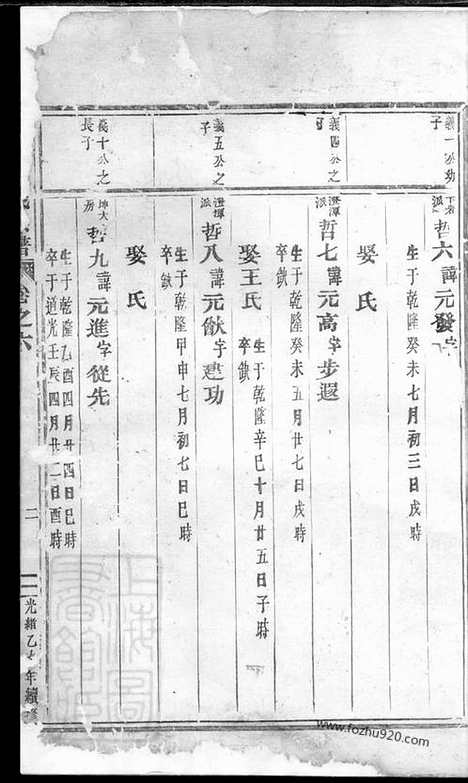 義一公幼
子
派
哲六諱元發字
生于乾隆癸未七月初三日戌時
娶氏
義四公之
子
澄潭
派
哲七諱元高字步遐
生于乾隆癸未五月廿七日戌時
卒缺
娶王氏
生于乾隆辛巳十月廿五日子時
卒缺
義五公之
子
澄潭
派
哲八諱元猷字建功
生于乾隆甲申七月初七日巳時
卒缺
娶氏
義十公之
長子
坤大
房
哲九諱元進字從先
生于乾隆乙酉四月廿四日巳時
卒于道光壬辰四月廿二日酉時
譜
卷之六
二
光緒乙
年續修
上海圖書館藏
www.fozhu920.com